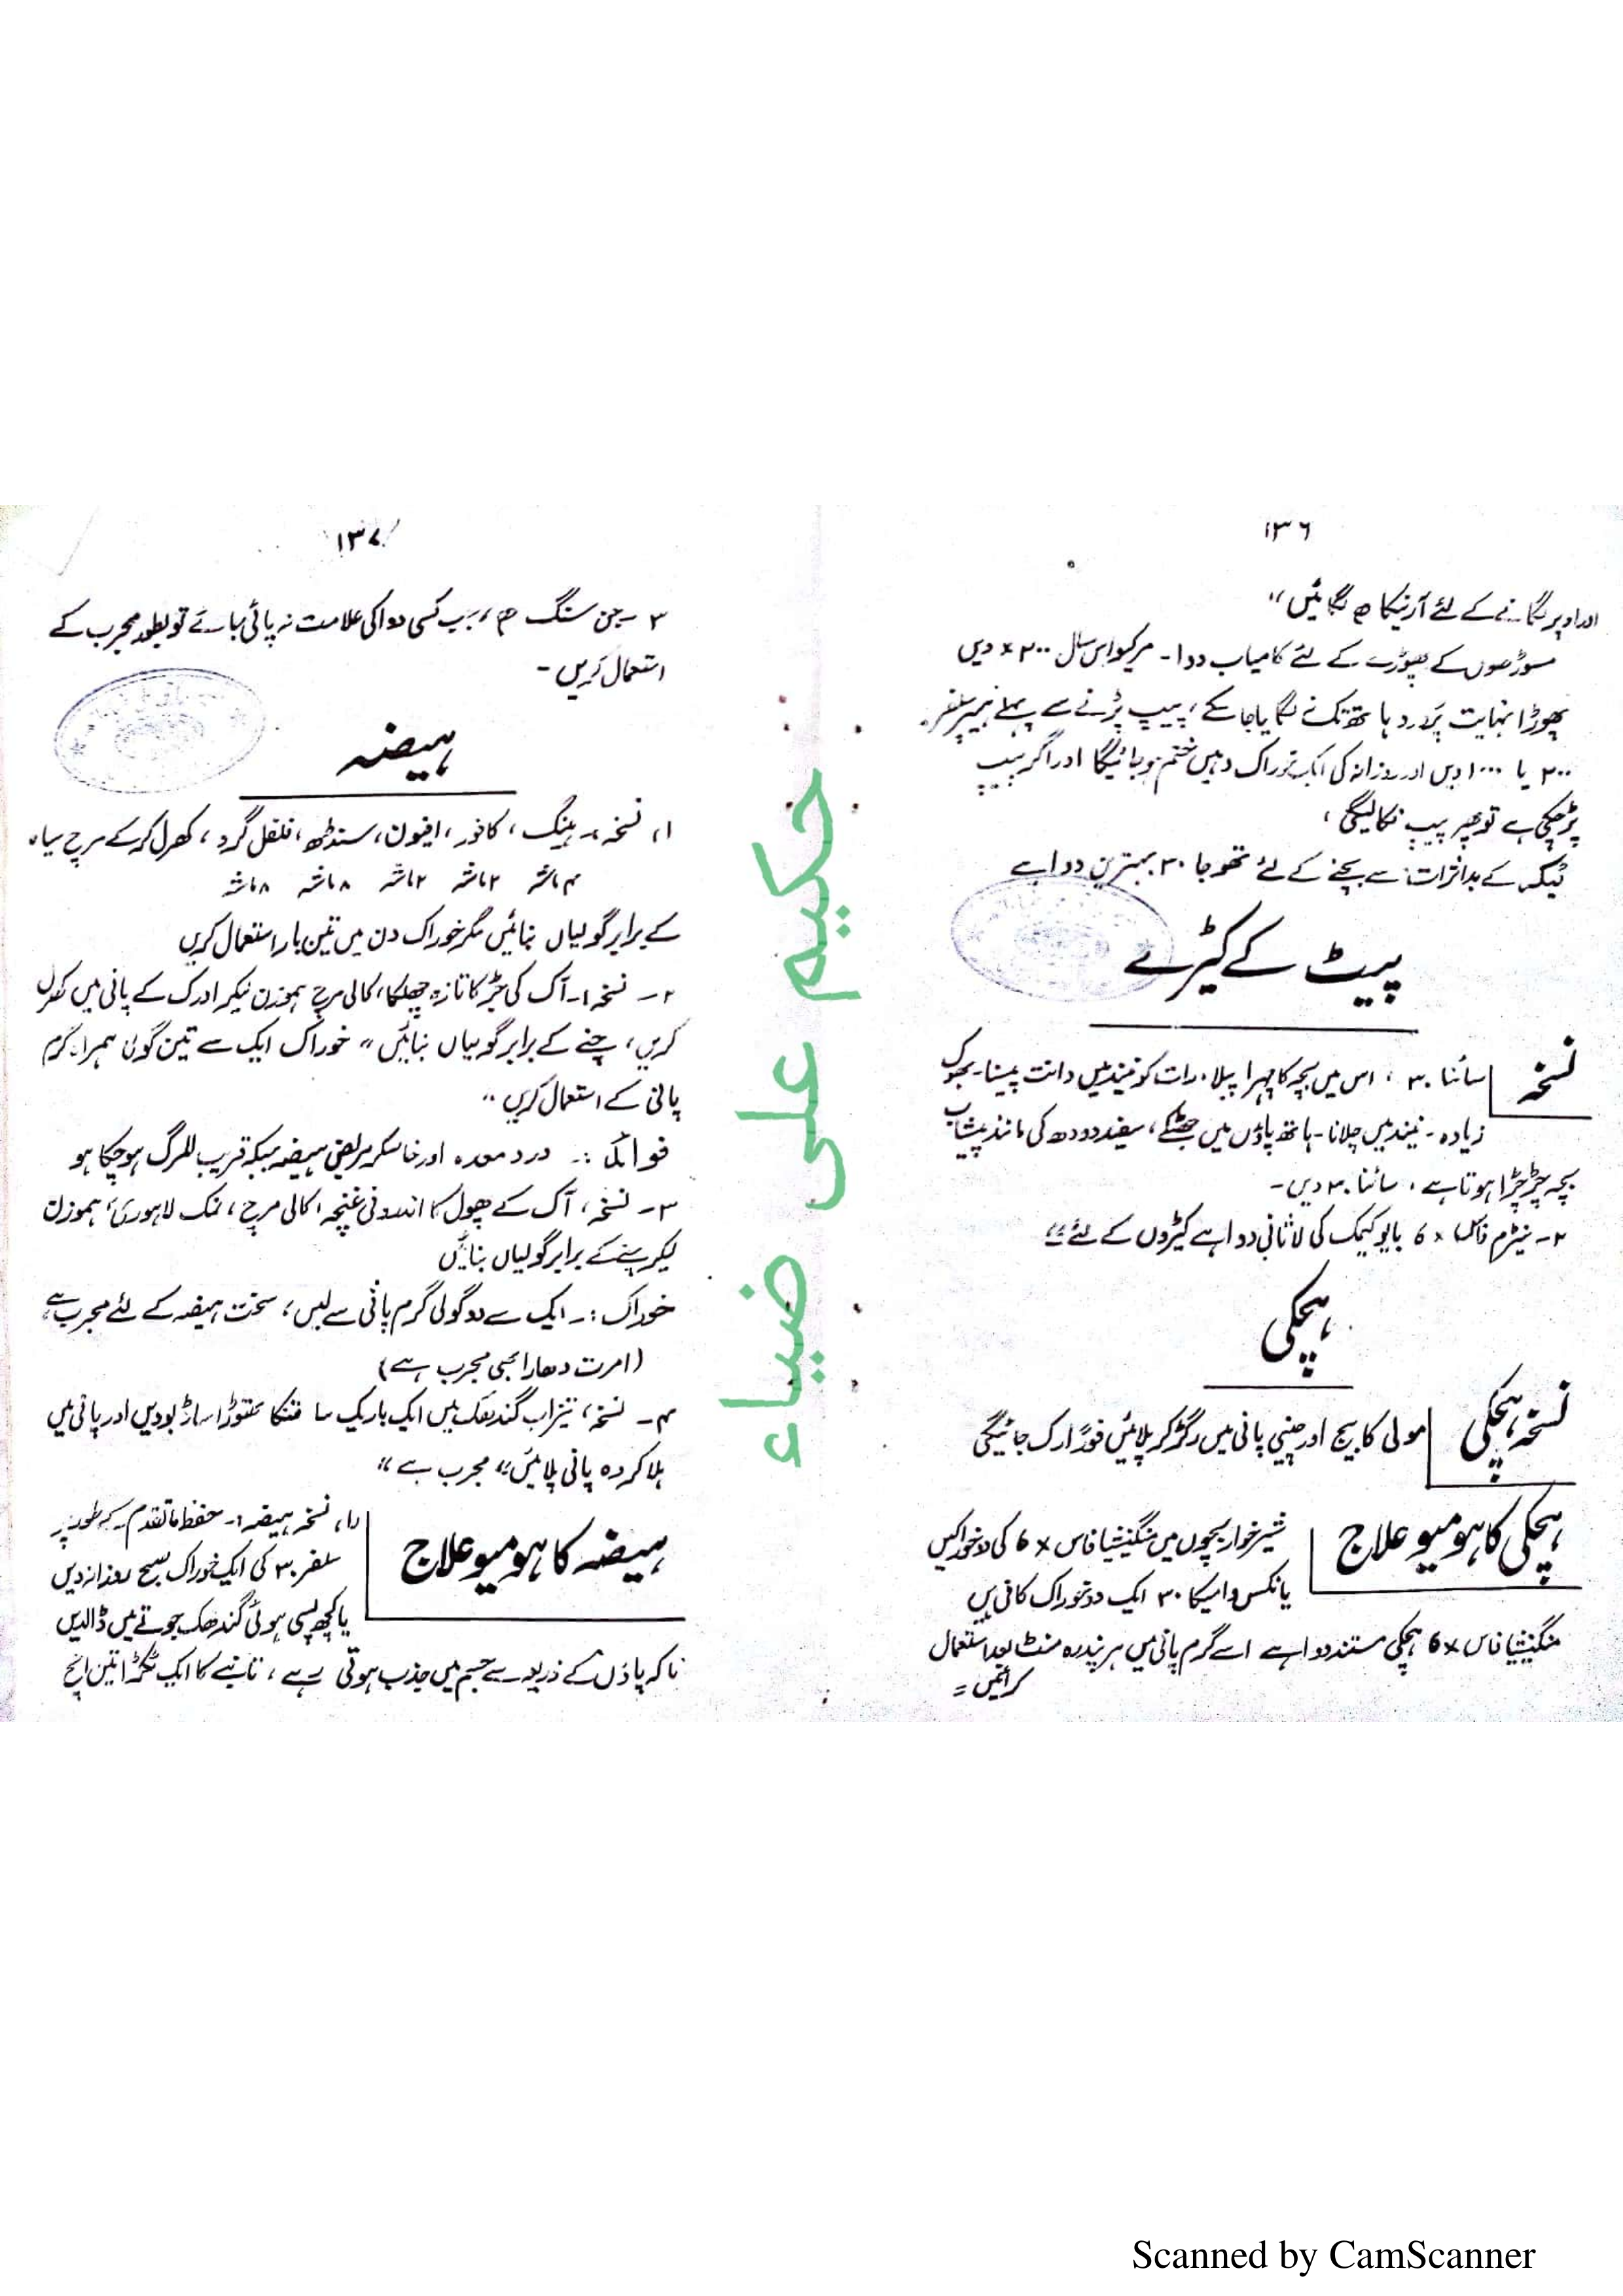 ۱۳۶
اور اوپر لگانے کے لئے آرنیکا لگائیں"
مسوڑھوں کے پھوڑے کے لئے کامیاب دوا - مرکیو اس سال ۲۰۰× دیں
پھوڑا نہایت پُر درد ہاتھ تک نہ لگایا جا سکے، پیپ پڑنے سے پہلے ہیپر سلفر
۲۰۰ یا ۱۰۰۰ دیں اور روزانہ کی ایک خوراک دہیں ختم ہو جائیگا اور اگر پیپ
پڑ چکی ہے تو پھر پیپ نکالیگی،
ٹیکہ کے بد اثرات سے بچنے کے لئے تھوجا ۳۰ بہترین دوا ہے
پیٹ کے کیڑے
نسخہ
سائنا ۳۰، اس میں بچہ کا چہرا پیلا، رات کو نیند میں دانت پیسنا - بھوک
زیادہ - نیند میں چلانا - ہاتھ پاؤں میں جھٹکے، سفید دودھ کی مانند پیشاب
بچہ چڑچڑا ہوتا ہے، سائنا ۳۰ دیں -
۲ - نیٹرم فاس ×6 بایو کیمک کی لاثانی دوا ہے کیڑوں کے لئے"
ہچکی
نسخہ ہچکی
مولی کا بیج اور چینی پانی میں رگڑ کر پلائیں فوراً رک جائیگی
ہچکی کا ہومیو علاج
شیر خوار بچوں میں منگنیشیا فاس ×6 کی دو خوراکیں
یا نکس وامیکا ۳۰ ایک دو خوراک کافی ہیں
منگنیشیا فاس ×6 ہچکی مستند دوا ہے اسے گرم پانی میں ہر پندرہ منٹ بعد استعمال
کرائیں =
حکیم علی ضیاء
۱۳۷
۳ - جن سنگ جب کسی دوا کی علامت نہ پائی جائے تو بطور مجرب کے
استعمال کریں -
ہیضہ
۱، نسخہ - ہینگ، کافور، افیون، سنڈھ، فلفل گرد، کھرل کر کے مرچ سیاہ
۴ ماشہ ۲ ماشہ ۲ ماشہ ۸ ماشہ ۸ ماشہ
کے برابر گولیاں بنائیں مگر خوراک دن میں تین بار استعمال کریں
۲ - نسخہ - آک کی جڑ کا تازہ چھلکا، کالی مرچ ہموزن لیکر ادرک کے پانی میں کھرل
کریں، چنے کے برابر گولیاں بنائیں" خوراک ایک سے تین گولی ہمراہ گرم
پانی کے استعمال کریں"
فوائد :- درد معدہ اور خاصکر مریض ہیضہ جبکہ قریب المرگ ہو چکا ہو
۳ - نسخہ، آک کے پھول کا اندرونی غنچہ، کالی مرچ، نمک لاہوری، ہموزن
لیکر چنے کے برابر گولیاں بنائیں
خوراک :- ایک سے دو گولی گرم پانی سے لیں، سخت ہیضہ کے لئے مجرب ہے
(امرت دھارا بھی مجرب ہے)
۴ - نسخہ، تیزاب گندھک میں ایک باریک سا تنکا تھوڑا سا ڈبو دیں اور پانی میں
ہلا کر وہ پانی پلائیں" مجرب ہے"
ہیضہ کا ہومیو علاج
۱، نسخہ ہیضہ :- حفظ ماتقدم کے طور پر
سلفر ۳۰ کی ایک خوراک صبح روزانہ دیں
یا کچھ پسی ہوئی گندھک جوتے میں ڈالدیں
تاکہ پاؤں کے ذریعہ سے جسم میں جذب ہوتی رہے، تانبے کا ایک ٹکڑا تین انچ
Scanned by CamScanner